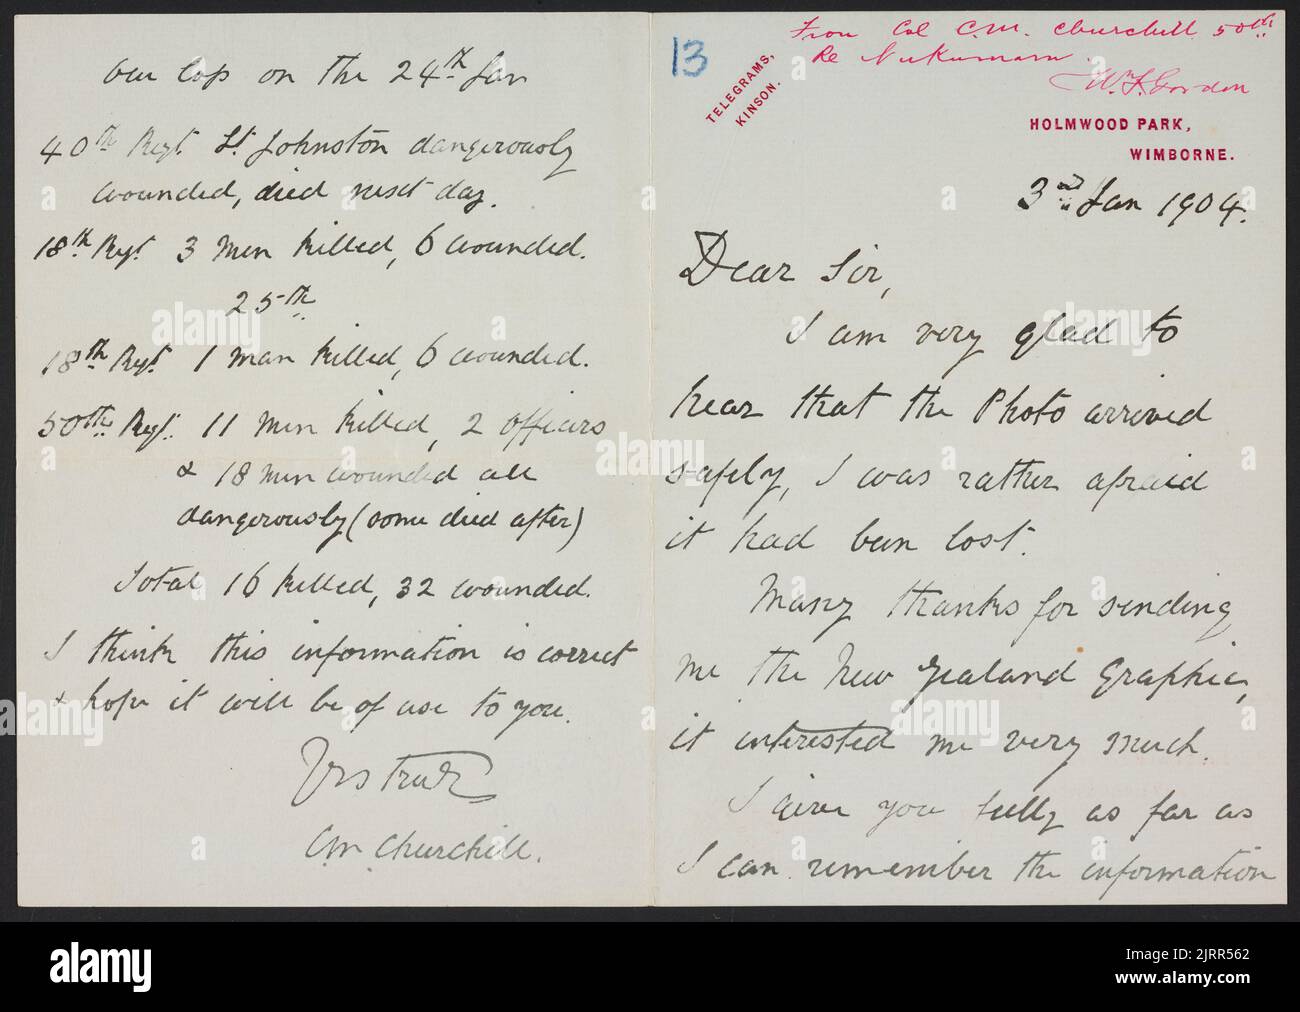 13
From Col C.M. Churchill 50th
Re Nukumaru.
Wm. F. Gordon
TELEGRAMS,
KINSON.
HOLMWOOD PARK,
WIMBORNE.
3rd Jan 1904.
Dear Sir,
I am very glad to
hear that the Photo arrived
safely, I was rather afraid
it had been lost.
Many thanks for sending
me the New Zealand Graphic,
it interested me very much.
I give you fully as far as
I can remember the information
our loss on the 24th Jan
40th Regt. Lt. Johnston dangerously
wounded, died next day.
18th Regt. 3 men killed, 6 wounded.
25th
18th Regt. 1 man killed, 6 wounded.
50th Regt. 11 men killed, 2 officers
& 18 men wounded all
dangerously (some died after)
Total 16 killed, 32 wounded.
I think this information is correct
& hope it will be of use to you.
Yrs truly
C.M. Churchill.
alamy
alamy
Image ID: 2JRR562
www.alamy.com